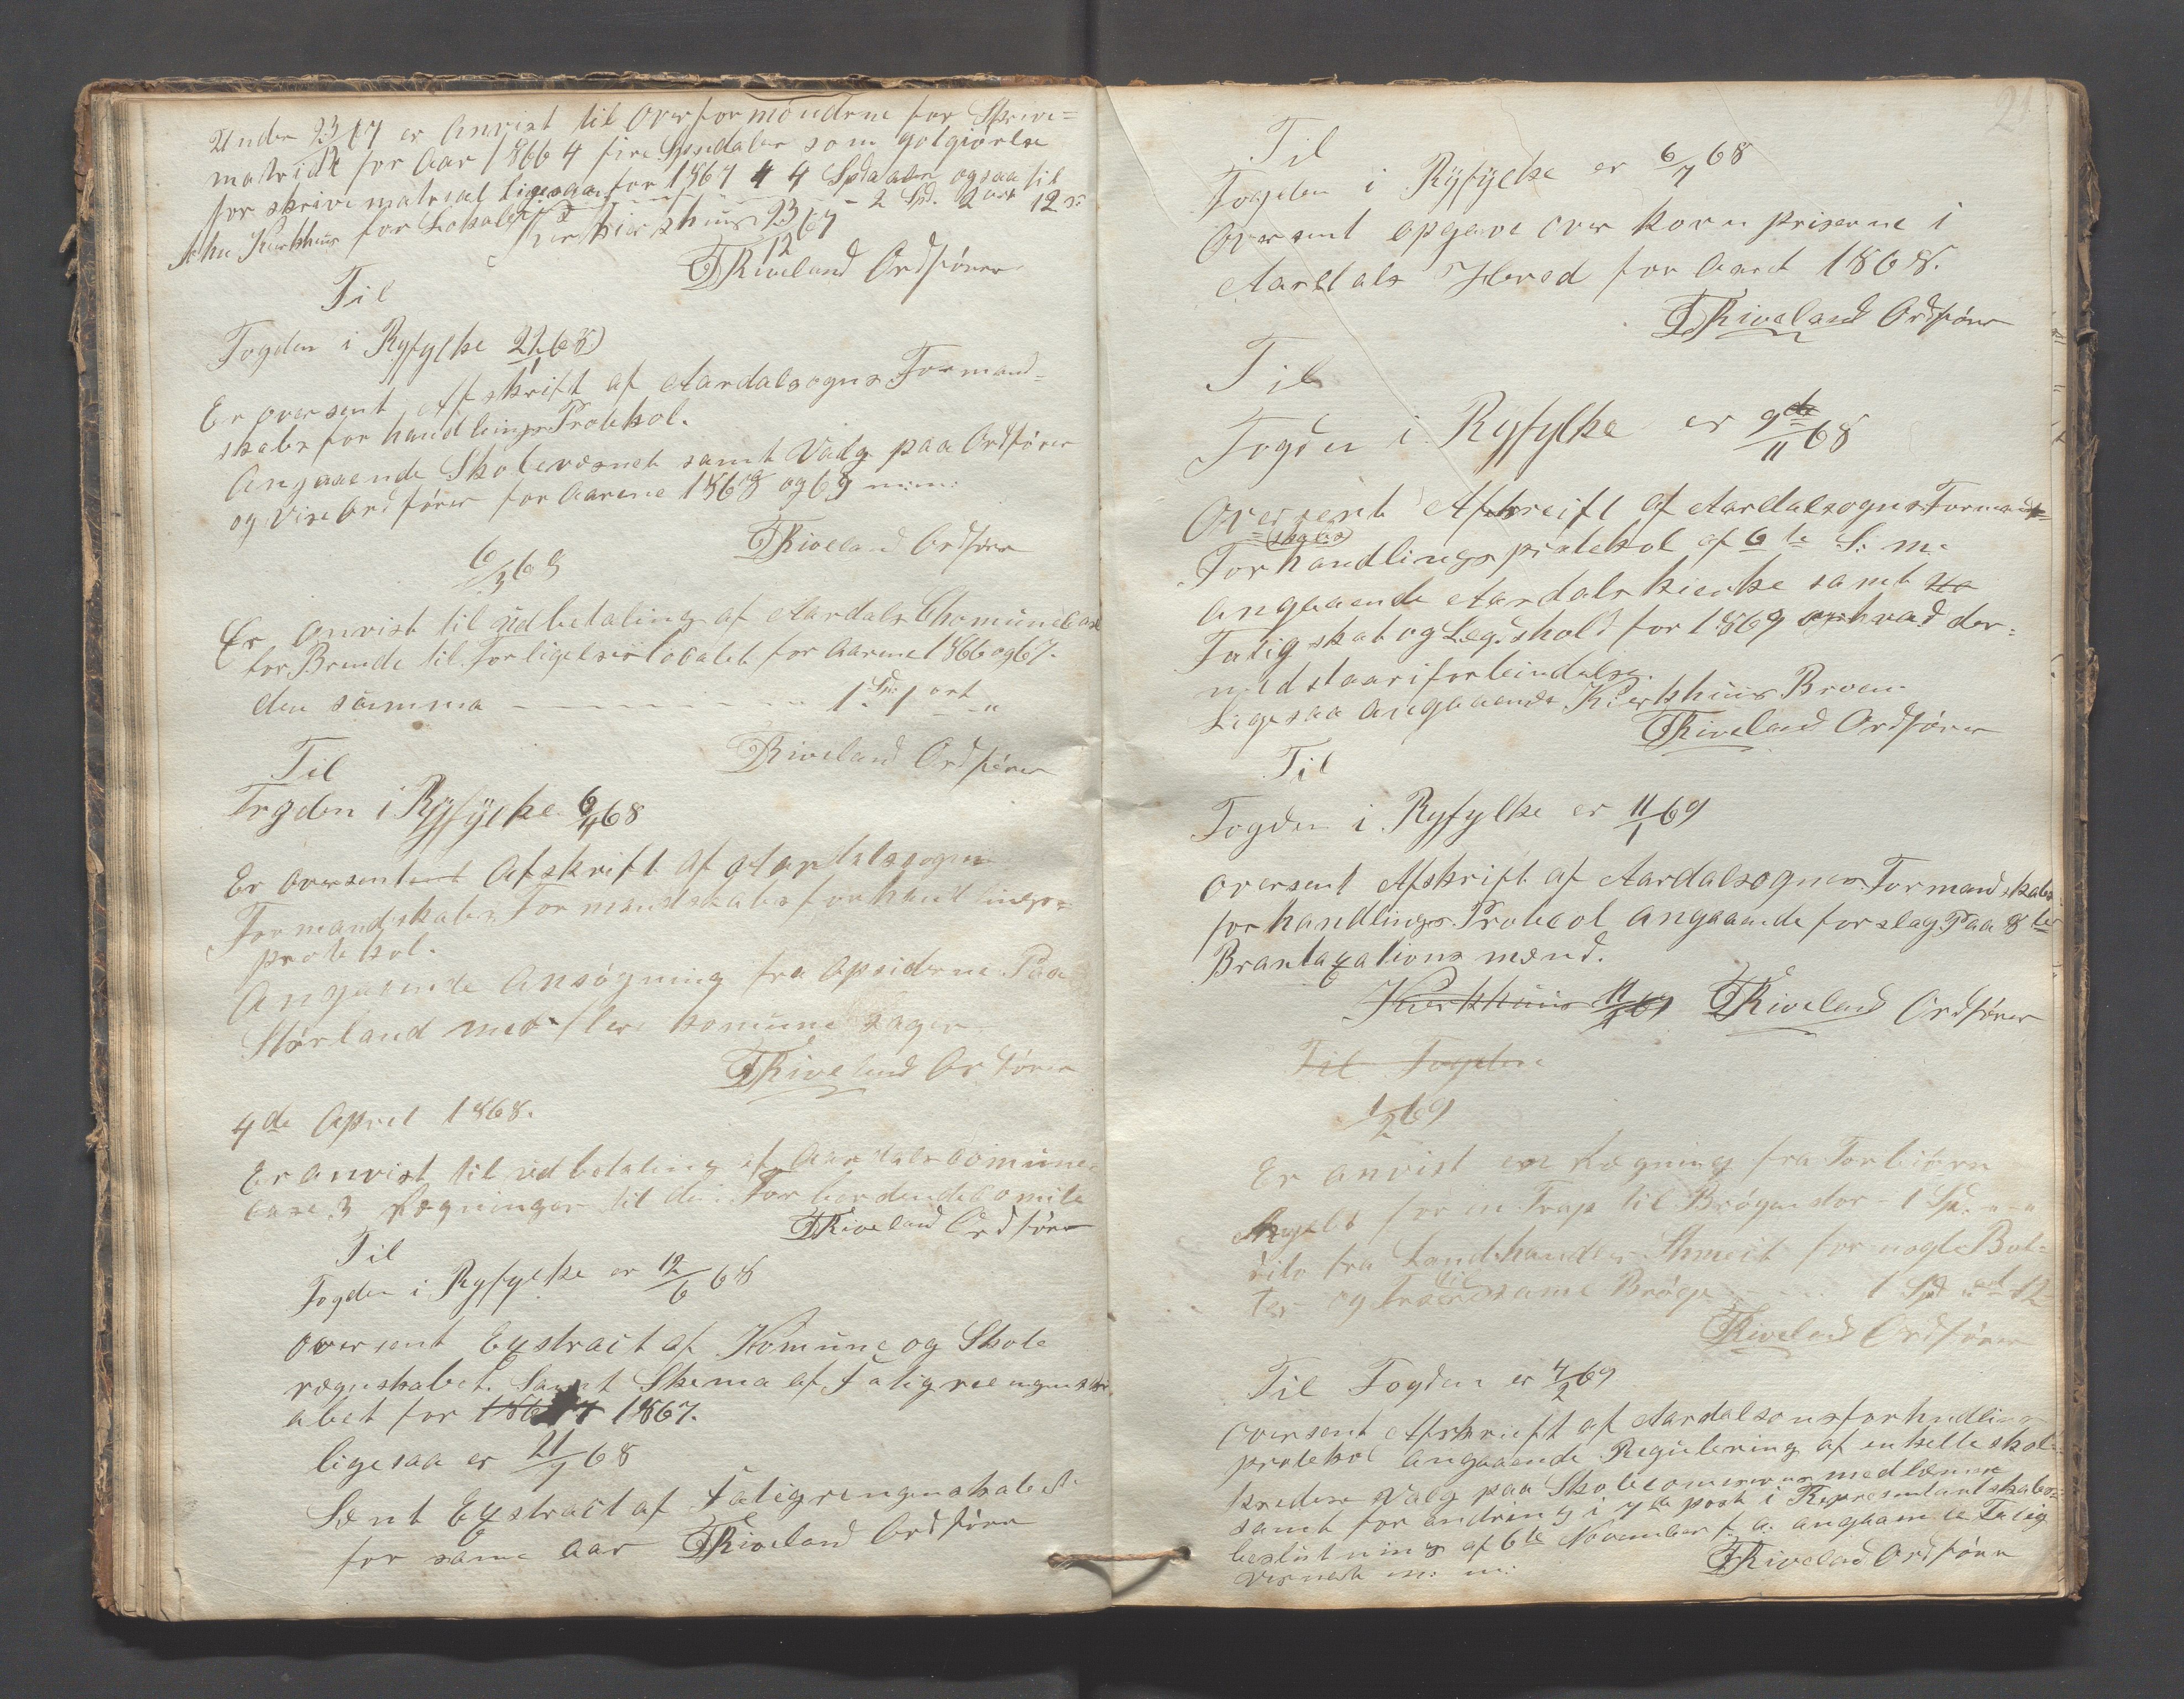 Under 23/12 67 er Anvist til Overformöndrne for Skrive=
matrialt for Aar 1866 4 fire Spesidaler som gotgiörelse
for skrivematreal ligesaa for 1867 4 Spd ogsaa til
Kirkhuus for Lokalet - 2 Spd. 2 ort 12 s:
Kierkhuus 23/12 67
TRiveland Ordförer
Til
Fogden i Ryfylke 22/1 68
Er oversent Afskrift af Aardalsogns Formand=
skabs forhandlings Protokol.
Angaaende Skolevæsnet samt Valg paa Ordförer
og Vise Ordförer for Aarene 1868 og 69 m:m:
TRiveland Ordförer
6/3 68
Er Anvist til udbetaling af Aardals Chomunecase
for Brende til Forligelseslocalet for Aarene 1866 og 67.
den summa - - - - - 1 Sp: 1 ort "
TRiveland Ordförer
Til
Fogden i Ryfylke 6/4 68
Er oversent Afskrift af Aardalsogns
Formandskabs Formandskabs forhandlings=
protokol.
Angaaende Ansögning fra Opsiderne Paa
Störland med flere komune sager
TRiveland Ordförer
4de April 1868.
Er anvist til udbetaling af Aardals Comune
case 3 Regninger til den Forberdende Comite
TRiveland Ordförer
Til
Fogden i Ryfylke er 12/6 68
oversent Extract af Komune og Skole
regnskabet. Samt Skema af Fatigregnsk
abet for 1867.
ligesaa er 21/7 68
Sent Extract af Fatigregnskabet
for same Aar TRiveland Ordförer
21
Til
Fogden i Ryfylke er 6/7 68
Oversent opgave over kornpriserne i
Aardals Hered for Aaret 1868.
TRiveland Ordförer
Til
Fogden i Ryfylke er 9de/11 68
Oversent Afskreift af Aardalsogns Formand=
(skabs)
Forhandlings protokol af 6te d: m:
angaaende Aardals kierke samt
Fatigskat og Legdshold for 1869 hvad der=
med staar i forbindelse.
Ligesaa angaaende Kierkhuus Broen
TRiveland Ordförer
Til
Fogden i Ryfylke er 11/1 69
oversent Afskrift af Aardalsogns Formandskabs
forhandlings Protecol angaaende forslag Paa 8te
Brantaxations mend.
Kierkhuus 11/1 69 TRiveland Ordförer
Til Fogden
1/2 69
Er anvist en Regning fra Torbiörn
for en Trap til Bröggen stor - 1 Sp. " - "
dito fra Landhandler Shmeit for nogle Bol=
ter og til same Brögge - - - 1 Spd " ort 12
TRiveland Ordförer
Til Fogden er 4/2 69
oversent Afskrieft af Aardalsons forhndlings
protekol Angaaende Regulering af enkelte skol
kredse Valg paa Skolecomissions medlemmer
samt forandring i 7de post i Represenntantskabs=
beslutning af 6te November f. a. angaaende Fatig
vesnet m: m:
TRiveland Ordförer